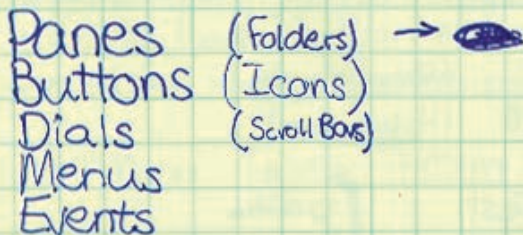 Panes (Folders) →
Buttons (Icons)
Dials (Scroll Bars)
Menus
Events